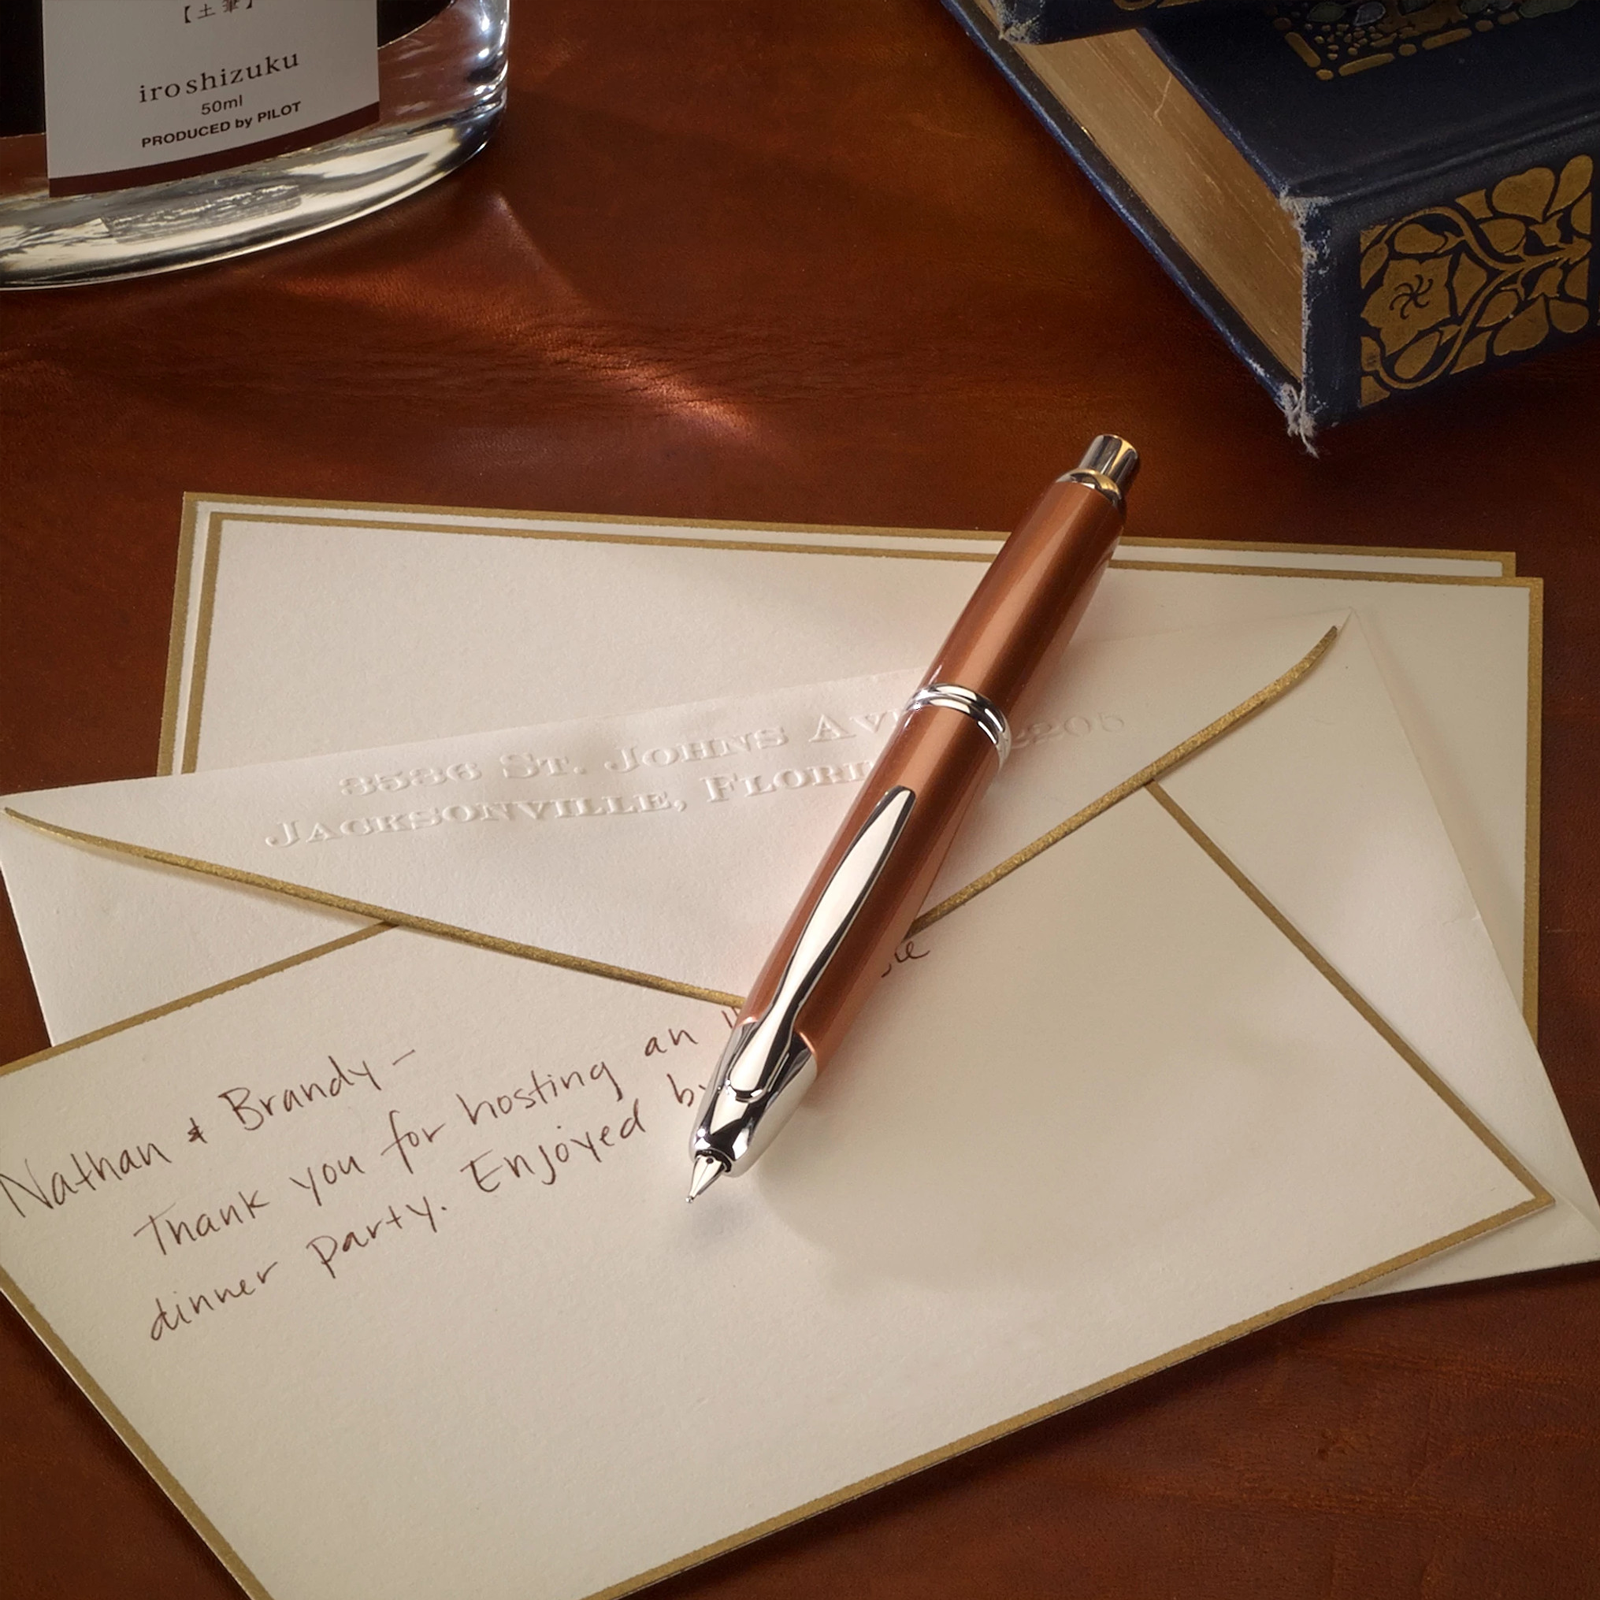 【土筆】
iroshizuku
50ml
PRODUCED by PILOT
3536 St. Johns Ave 2205
Jacksonville, Flori
Nathan & Brandy –
Thank you for hosting an
dinner party. Enjoyed by